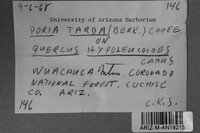 9-6-68
146
University of Arizona Herbarium
PORIA TARDA (BERK.) COOKE
ON
QUERCUS HYPOLEUCOIDES
CAMUS
HUACHUCA Mtns. CORONADO
NATIONAL FOREST. COCHISE
CO. ARIZ.
146
ARIZ-M-AN19215